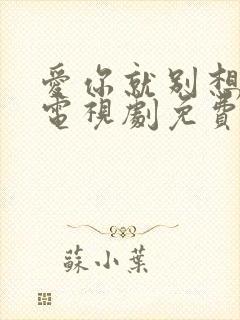 愛你就別想
電視劇免費
蘇小葉